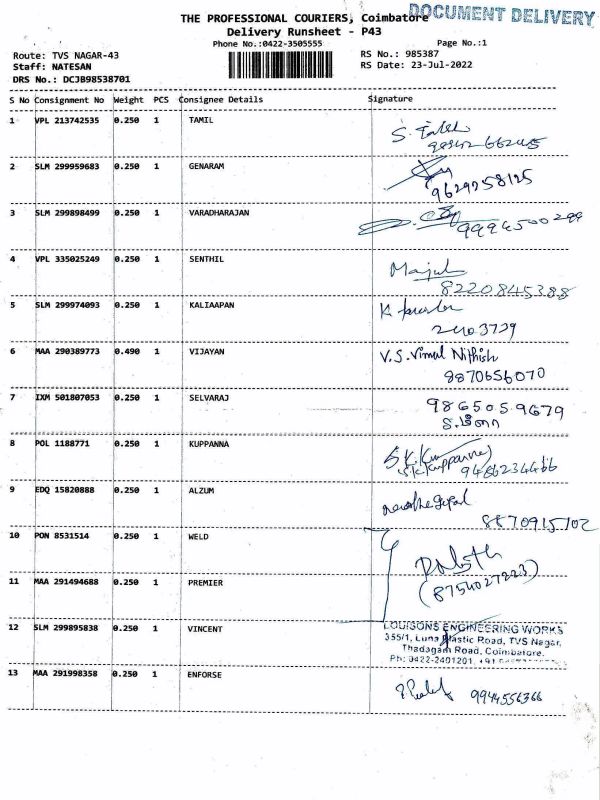 DOCUMENT DELIVERY
THE PROFESSIONAL COURIERS, Coimbatore
Delivery Runsheet - P43
Phone No.:0422-3505555
Page No.:1
Route: TVS NAGAR-43
RS No.: 985387
Staff: NATESAN
RS Date: 23-Jul-2022
DRS No.: DCJB98538701
S No Consignment No Weight PCS Consignee Details Signature
1 VPL 213742535 0.250 1 TAMIL
2 SLM 299959683 0.250 1 GENARAM
9629258125
3 SLM 299898499 0.250 1 VARADHARAJAN
9994500299
4 VPL 335025249 0.250 1 SENTHIL
8220845388
5 SLM 299974093 0.250 1 KALIAAPAN
6 MAA 290389773 0.490 1 VIJAYAN V.S. Vimal Nithish
8870656070
7 IXM 501807053 0.250 1 SELVARAJ 9865059679
8 POL 1188771 0.250 1 KUPPANNA
S.K.Kuppanna
9486234466
9 EDQ 15820888 0.250 1 ALZUM
8870915702
10 PON 8531514 0.250 1 WELD
11 MAA 291494688 0.250 1 PREMIER
(8754027223)
12 SLM 299895838 0.250 1 VINCENT LOUISONS ENGINEERING WORKS
355/1, Luna Plastic Road, TVS Nagar,
Thadagam Road, Coimbatore.
Ph: 0422-2401201, +91
13 MAA 291998358 0.250 1 ENFORSE
9944556366